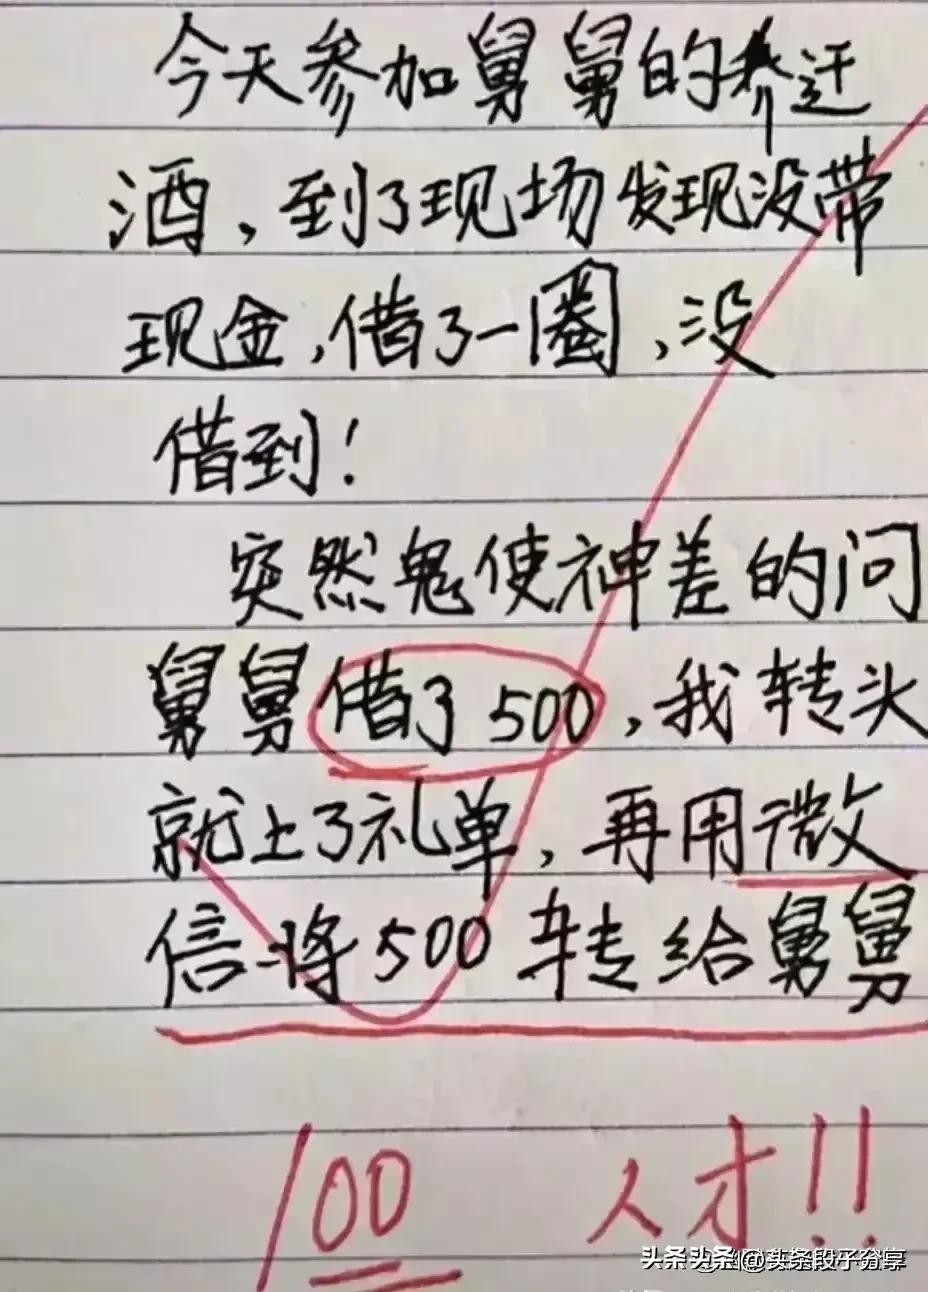 今天参加舅舅的乔迁
酒,到了现场发现没带
现金,借了一圈,没
借到!
突然鬼使神差的问
舅舅借了500,我转头
就上了礼单,再用微
信将500转给舅舅
100 人才!!
头条头条@头条段子分享